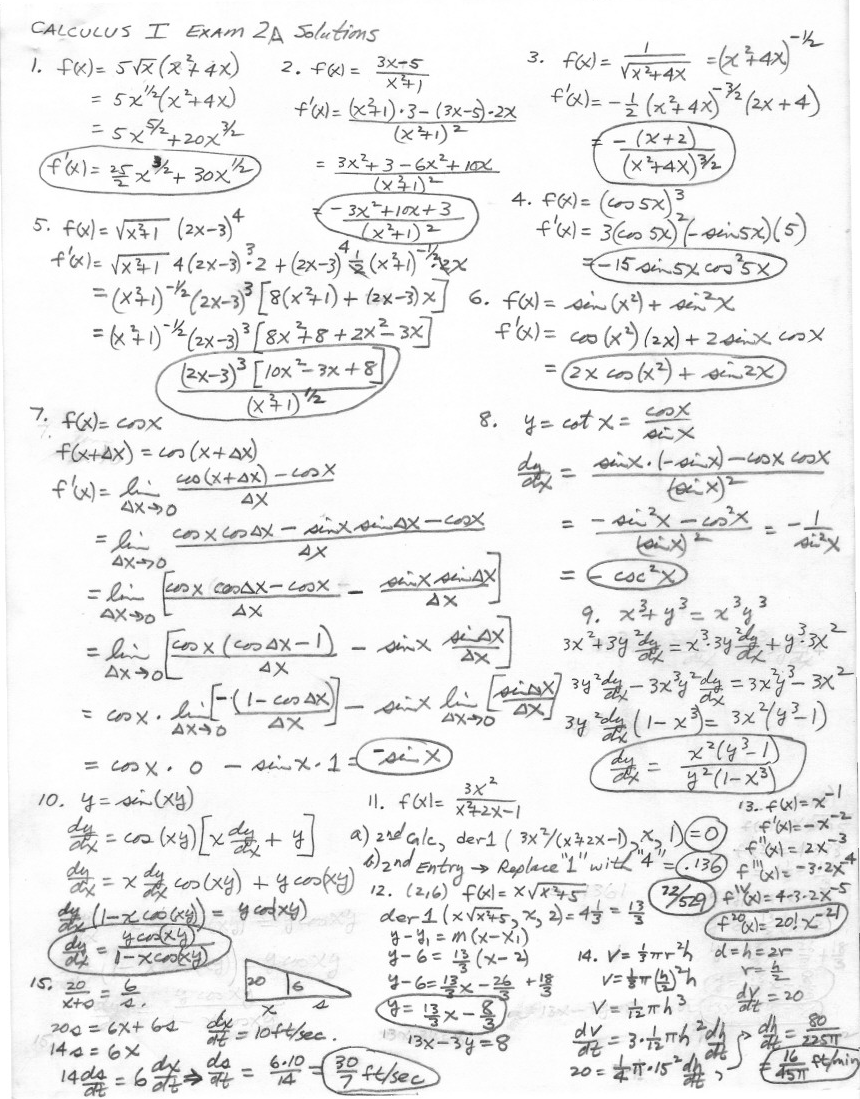 CALCULUS I EXAM 2A Solutions
1. f(x) = 5√x (x²+4x)
= 5x^(1/2)(x²+4x)
= 5x^(5/2) + 20x^(3/2)
f'(x) = 25/2 x^(3/2) + 30x^(1/2)
2. f(x) = (3x-5)/(x²+1)
f'(x) = ((x²+1)·3 - (3x-5)·2x)/(x²+1)²
= (3x²+3-6x²+10x)/(x²+1)²
= (-3x²+10x+3)/(x²+1)²
3. f(x) = 1/√(x²+4x) = (x²+4x)^(-1/2)
f'(x) = -1/2 (x²+4x)^(-3/2) (2x+4)
= -(x+2)/(x²+4x)^(3/2)
4. f(x) = (cos 5x)³
f'(x) = 3(cos 5x)²(-sin 5x)(5)
= -15 sin 5x cos² 5x
5. f(x) = √(x²+1) (2x-3)⁴
f'(x) = √(x²+1) 4(2x-3)³·2 + (2x-3)⁴ 1/2 (x²+1)^(-1/2)·2x
= (x²+1)^(-1/2) (2x-3)³ [8(x²+1) + (2x-3)x]
= (x²+1)^(-1/2) (2x-3)³ [8x²+8+2x²-3x]
(2x-3)³ [10x²-3x+8]/(x²+1)^(1/2)
6. f(x) = sin(x²) + sin²x
f'(x) = cos(x²)(2x) + 2 sin x cos x
= 2x cos(x²) + sin 2x
7. f(x) = cos x
f(x+Δx) = cos(x+Δx)
f'(x) = lim Δx→0 (cos(x+Δx) - cos x)/Δx
= lim Δx→0 (cos x cos Δx - sin x sin Δx - cos x)/Δx
= lim Δx→0 [(cos x cos Δx - cos x)/Δx - (sin x sin Δx)/Δx]
= lim Δx→0 [cos x (cos Δx - 1)/Δx - sin x (sin Δx)/Δx]
= cos x · lim Δx→0 [-(1 - cos Δx)/Δx] - sin x lim Δx→0 [sin Δx/Δx]
= cos x · 0 - sin x · 1 = -sin x
8. y = cot x = cos x/sin x
dy/dx = (sin x·(-sin x) - cos x cos x)/(sin x)²
= (-sin²x - cos²x)/(sin x)² = -1/sin²x
= -csc²x
9. x³+y³ = x³y³
3x²+3y² dy/dx = x³·3y² dy/dx + y³·3x²
3y² dy/dx - 3x³y² dy/dx = 3x²y³ - 3x²
3y² dy/dx (1-x³) = 3x²(y³-1)
dy/dx = x²(y³-1)/(y²(1-x³))
10. y = sin(xy)
dy/dx = cos(xy)[x dy/dx + y]
dy/dx = x dy/dx cos(xy) + y cos(xy)
dy/dx (1-x cos(xy)) = y cos(xy)
dy/dx = y cos(xy)/(1-x cos(xy))
11. f(x) = 3x²/(x²+2x-1)
a) 2nd Calc, der1(3x²/(x²+2x-1), x, 1) = 0
b) 2nd Entry → Replace "1" with "4" = .136
72/529
12. (2,6) f(x) = x√(x²+5)
der1(x√(x²+5), x, 2) = 4 1/3 = 13/3
y-y₁ = m(x-x₁)
y-6 = 13/3 (x-2)
y-6 = 13/3 x - 26/3 + 18/3
y = 13/3 x - 8/3
13x-3y = 8
13. f(x) = x⁻¹
f'(x) = -x⁻²
f''(x) = 2x⁻³
f'''(x) = -3·2x⁻⁴
f^IV(x) = 4·3·2x⁻⁵
f^20(x) = 20! x⁻²¹
14. V = 1/3 πr²h
d=h=2r
V = 1/3 π(h/2)²h
r = h/2
V = 1/12 πh³
dV/dt = 20
dV/dt = 3·1/12 πh² dh/dt
20 = 1/4 π·15² dh/dt,
dh/dt = 80/225π
= 16/45π ft/min
15. 20/(x+s) = 6/s.
20 6
x s
20s = 6x+6s dx/dt = 10ft/sec.
14s = 6x
14 ds/dt = 6 dx/dt ⇒ ds/dt = 6·10/14 = 30/7 ft/sec